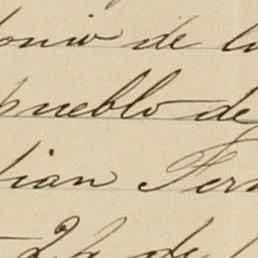 onio de l
pueblo de
ian Fer
26 de